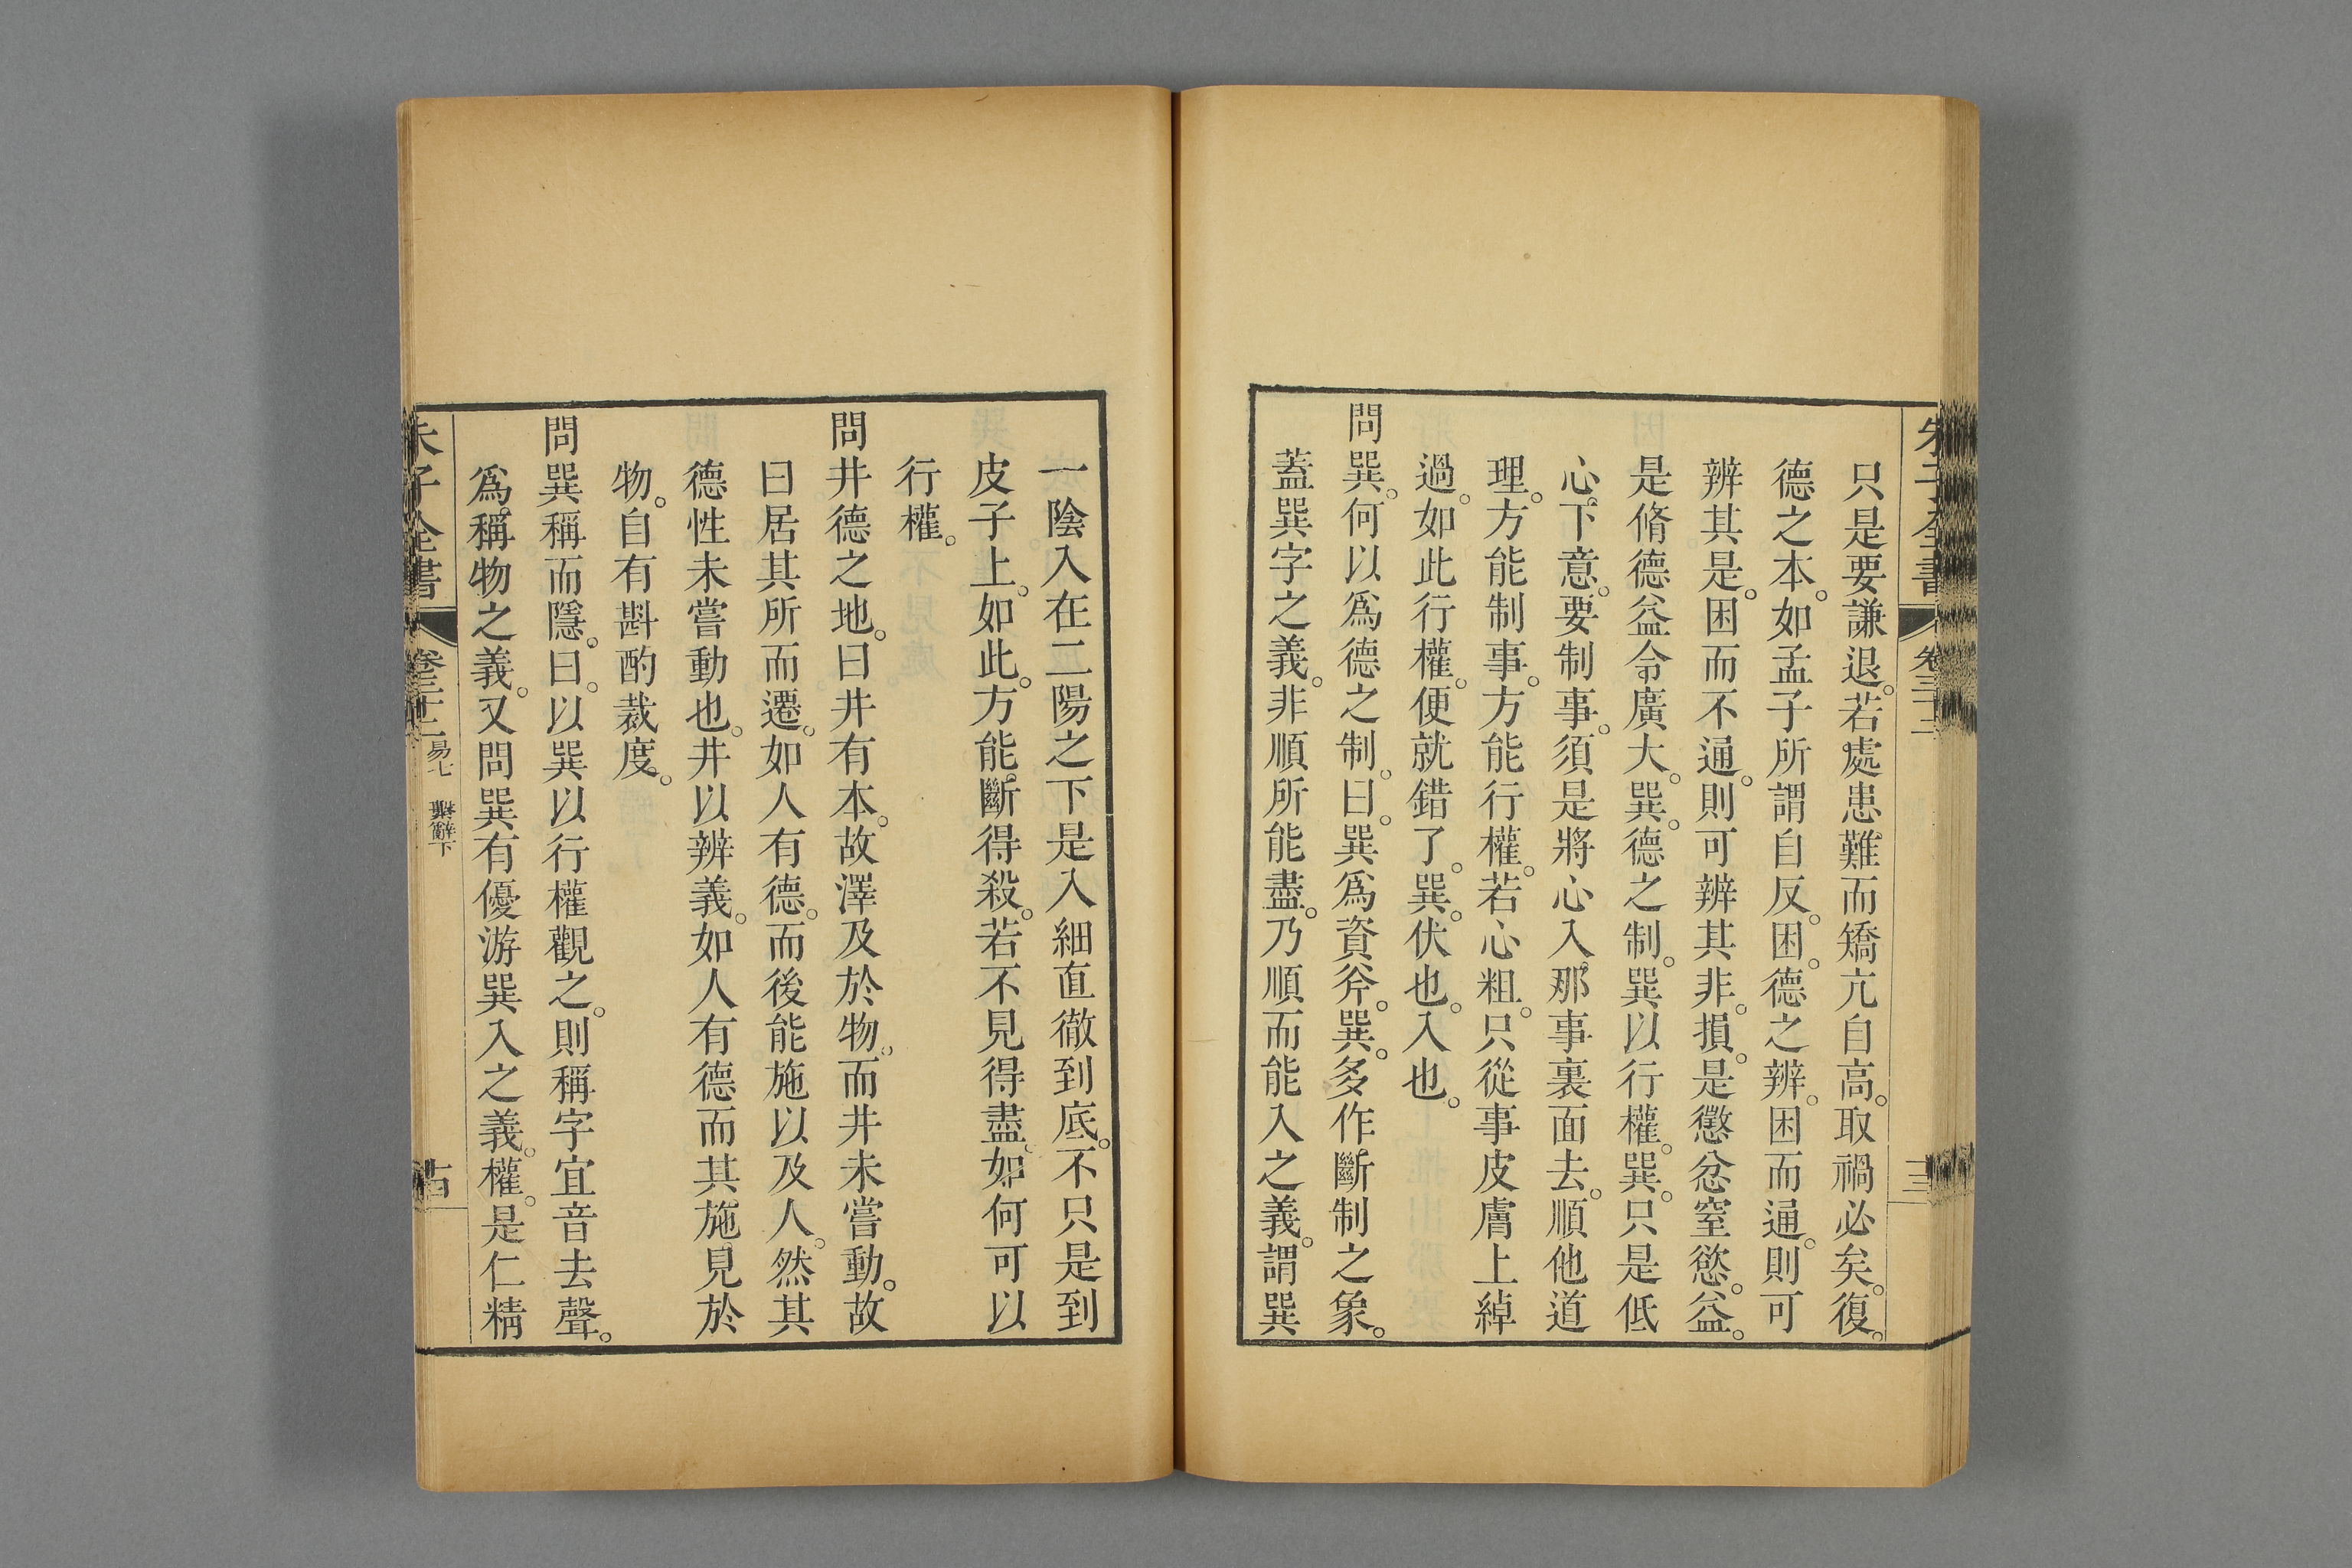 只是要謙退。若處患難而矯亢自高。取禍必矣。復。
德之本。如孟子所謂自反。困。德之辨。困而通。則可
辨其是。困而不通。則可辨其非。損。是懲忿窒慾。益。
是脩德益令廣大。巽。德之制。巽以行權。巽。只是低
心下意。要制事。須是將心入那事裏面去。順他道
理。方能制事。方能行權。若心粗。只從事皮膚上綽
過。如此行權。便就錯了。巽。伏也。入也。
問巽。何以爲德之制。曰。巽爲資斧。巽。多作斷制之象。
蓋巽字之義。非順所能盡。乃順而能入之義。謂巽
一陰入在二陽之下。是入細直徹到底。不只是到
皮子上。如此。方能斷得殺。若不見得盡。如何可以
行權。
問井德之地。曰井有本。故澤及於物。而井未嘗動。故
曰居其所而遷。如人有德。而後能施以及人。然其
德性未嘗動也。井以辨義。如人有德而其施見於
物。自有斟酌裁度。
問巽稱而隱。曰。以巽以行權觀之。則稱字宜音去聲。
爲稱物之義。又問巽有優游巽入之義。權。是仁精
朱子全書
卷三十二
易七
繫辭下